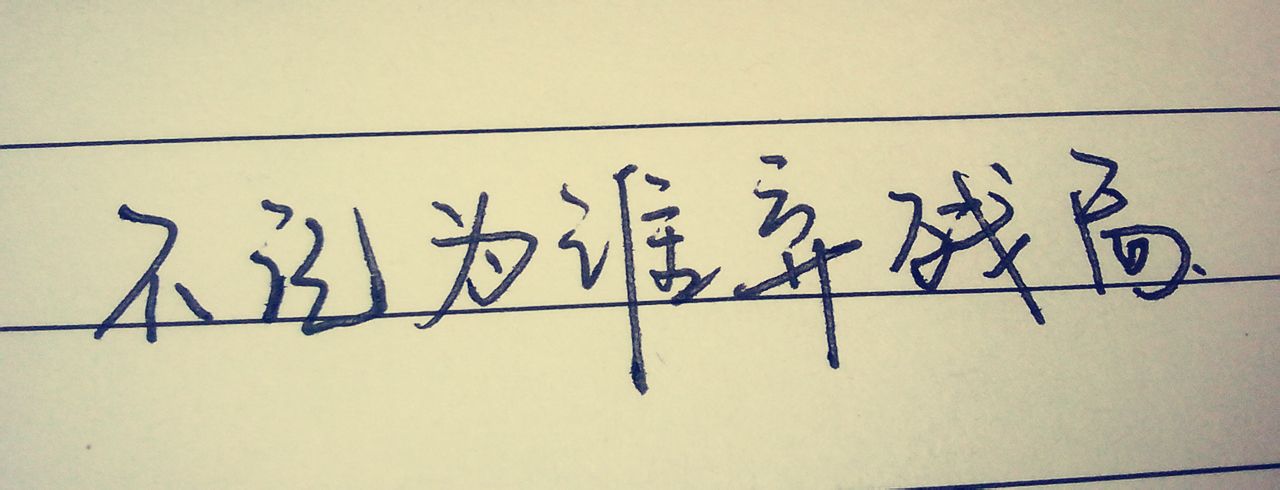 不为谁弃残局